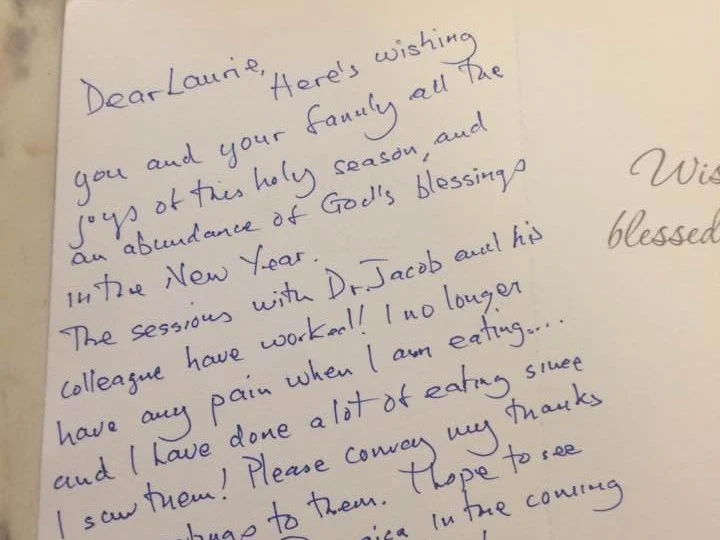 Dear Laurie,
Here's wishing
you and your family all the
joys of this holy season, and
an abundance of God's blessings
in the New Year.
The sessions with Dr. Jacob and his
colleague have worked! I no longer
have any pain when I am eating....
and I have done a lot of eating since
I saw them! Please convey my thanks
to them. I hope to see
in the coming
Wis
blessed